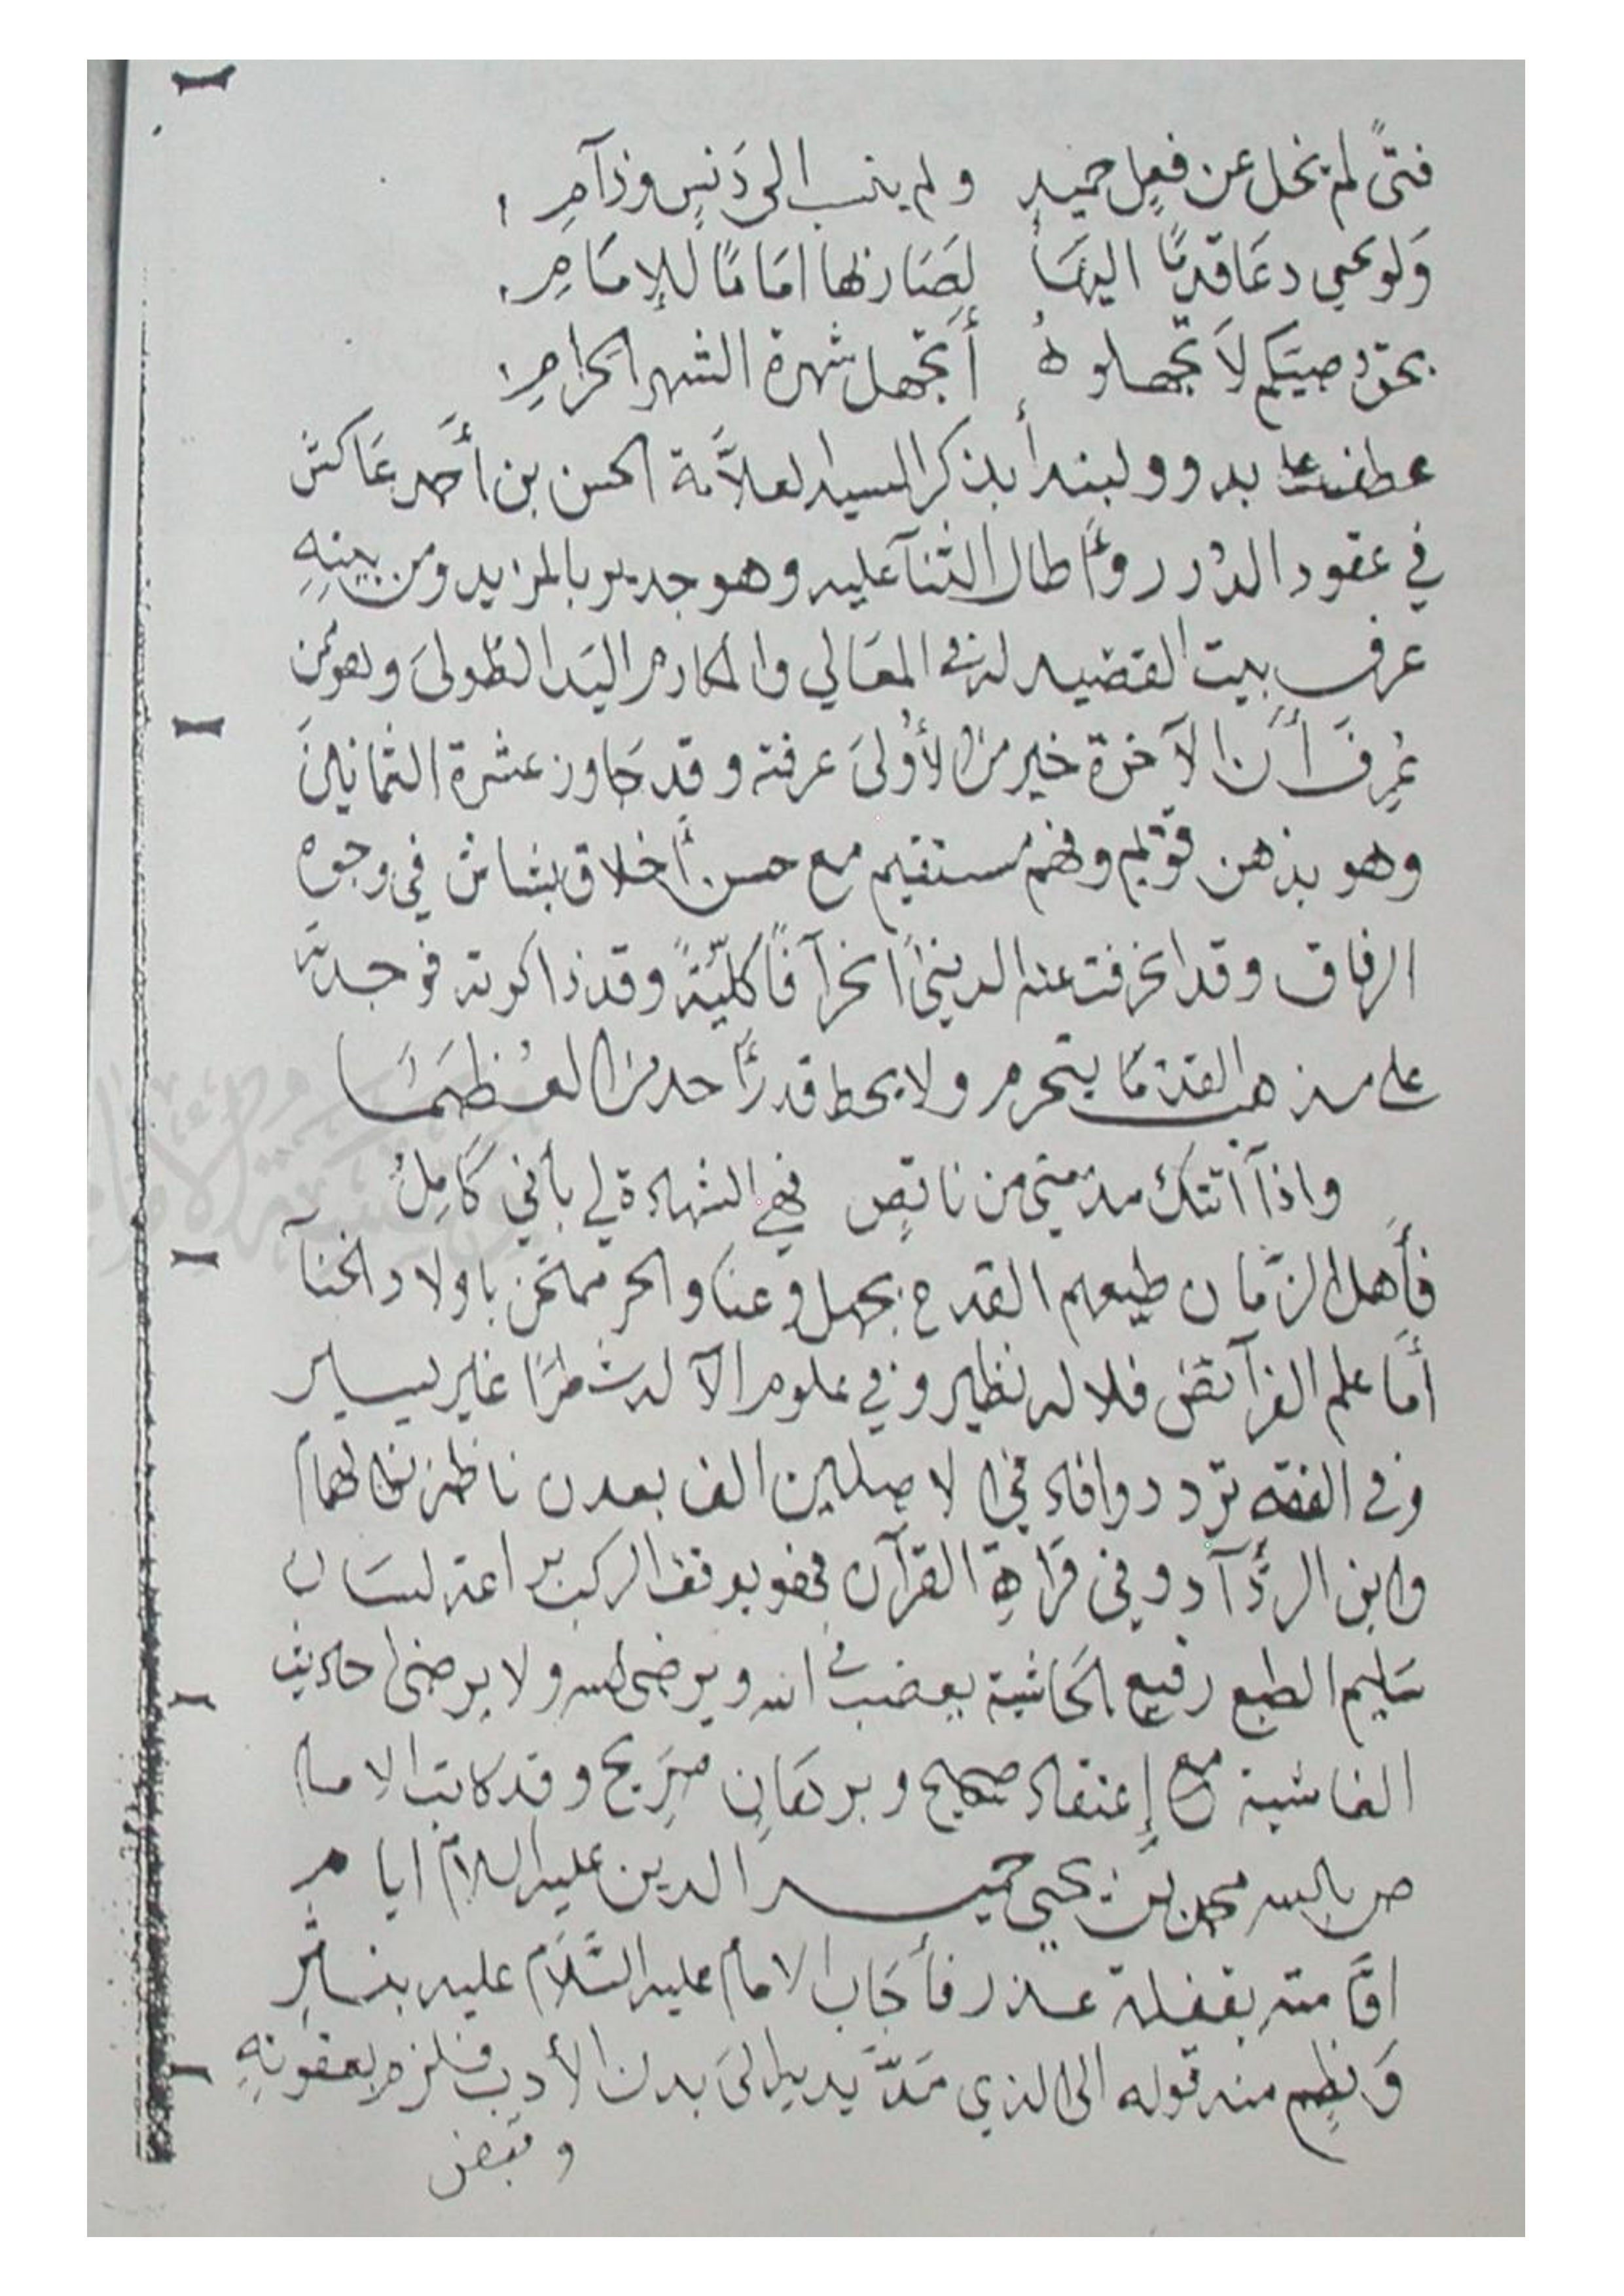 فتىً لم يخل عن فعلٍ حميدٍ ولم ينسب الى دَنسٍ وذآمِ
وَلو يحيى دعَا قدمًا اليهَا لصَار بها امَامًا للإمَامِ
بحق وصيتكم لاَ تجهلوهُ أتجهل شهرة الشهر الحرامِ
عطفت على بدو ولبندأ بذكر السيد العلاَّمة الحسن بن أحمد عَاكش
في عقود الدُرر وأطال الثنآ عليه وهو جدير بالمزيد ومن بيتهِ
عرف بيت القصيد له في المعَالي والمكارم اليَد الطُولىَ وهو ممن
عُرِفَ أَن الآخرة خير من الأُولىَ عرفته وقد جَاوز عشرة الثمانينَ
وهو بذهن قويم وفهم مستقيم مع حسن أخلاق بشاش في وجوه
الرفاق وقد انحرفت عنه الدنيا انحرآفًا كليَّةً وقد ذاكرته فوجدته
على مذهب القدمَا يتحرم ولا يحط قدر أحد من العُظمَا
واذا آتتك مذمتي من ناقصٍ فهي الشهادة لي بأني كَامِلُ
فأهل الزمان طبعهم القدح بجهل وعنا والحر ممتحن باولاد الخنآ
أمَا علم الفرآئض فلا له نظير وفي علوم الآلة شطرًا غير يسير
وفي الفقه تردد وافاد في الاصلين الف بعدن ناظر بها
وابن الردَّآد وفي قرَاةِ القرآن فهو يوقف الركب براعة لسَان
سَليم الطبع رفيع الحَاشية يغضب في الله ويرضى لله ولا يرضى احاديث
الغاشية مع إعتقاد صحيح وبرهَانٍ صَرِيح وقد كاتب الامام
المنصور بالله محمد بن يحيى حميد الدين عليه السلام ايام
اقَامته بقفلة عذر فأجَاب الامام عليه السَّلاَم عليه بنثرٍ
وَنظم منه قوله الى الذي مَدَّ يَديه الىَ بدن الأدب فلزم بعقوتهِ
وقبض